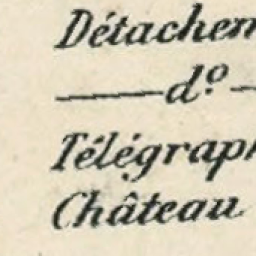 Détachem
— dº —
Télégraph
Château